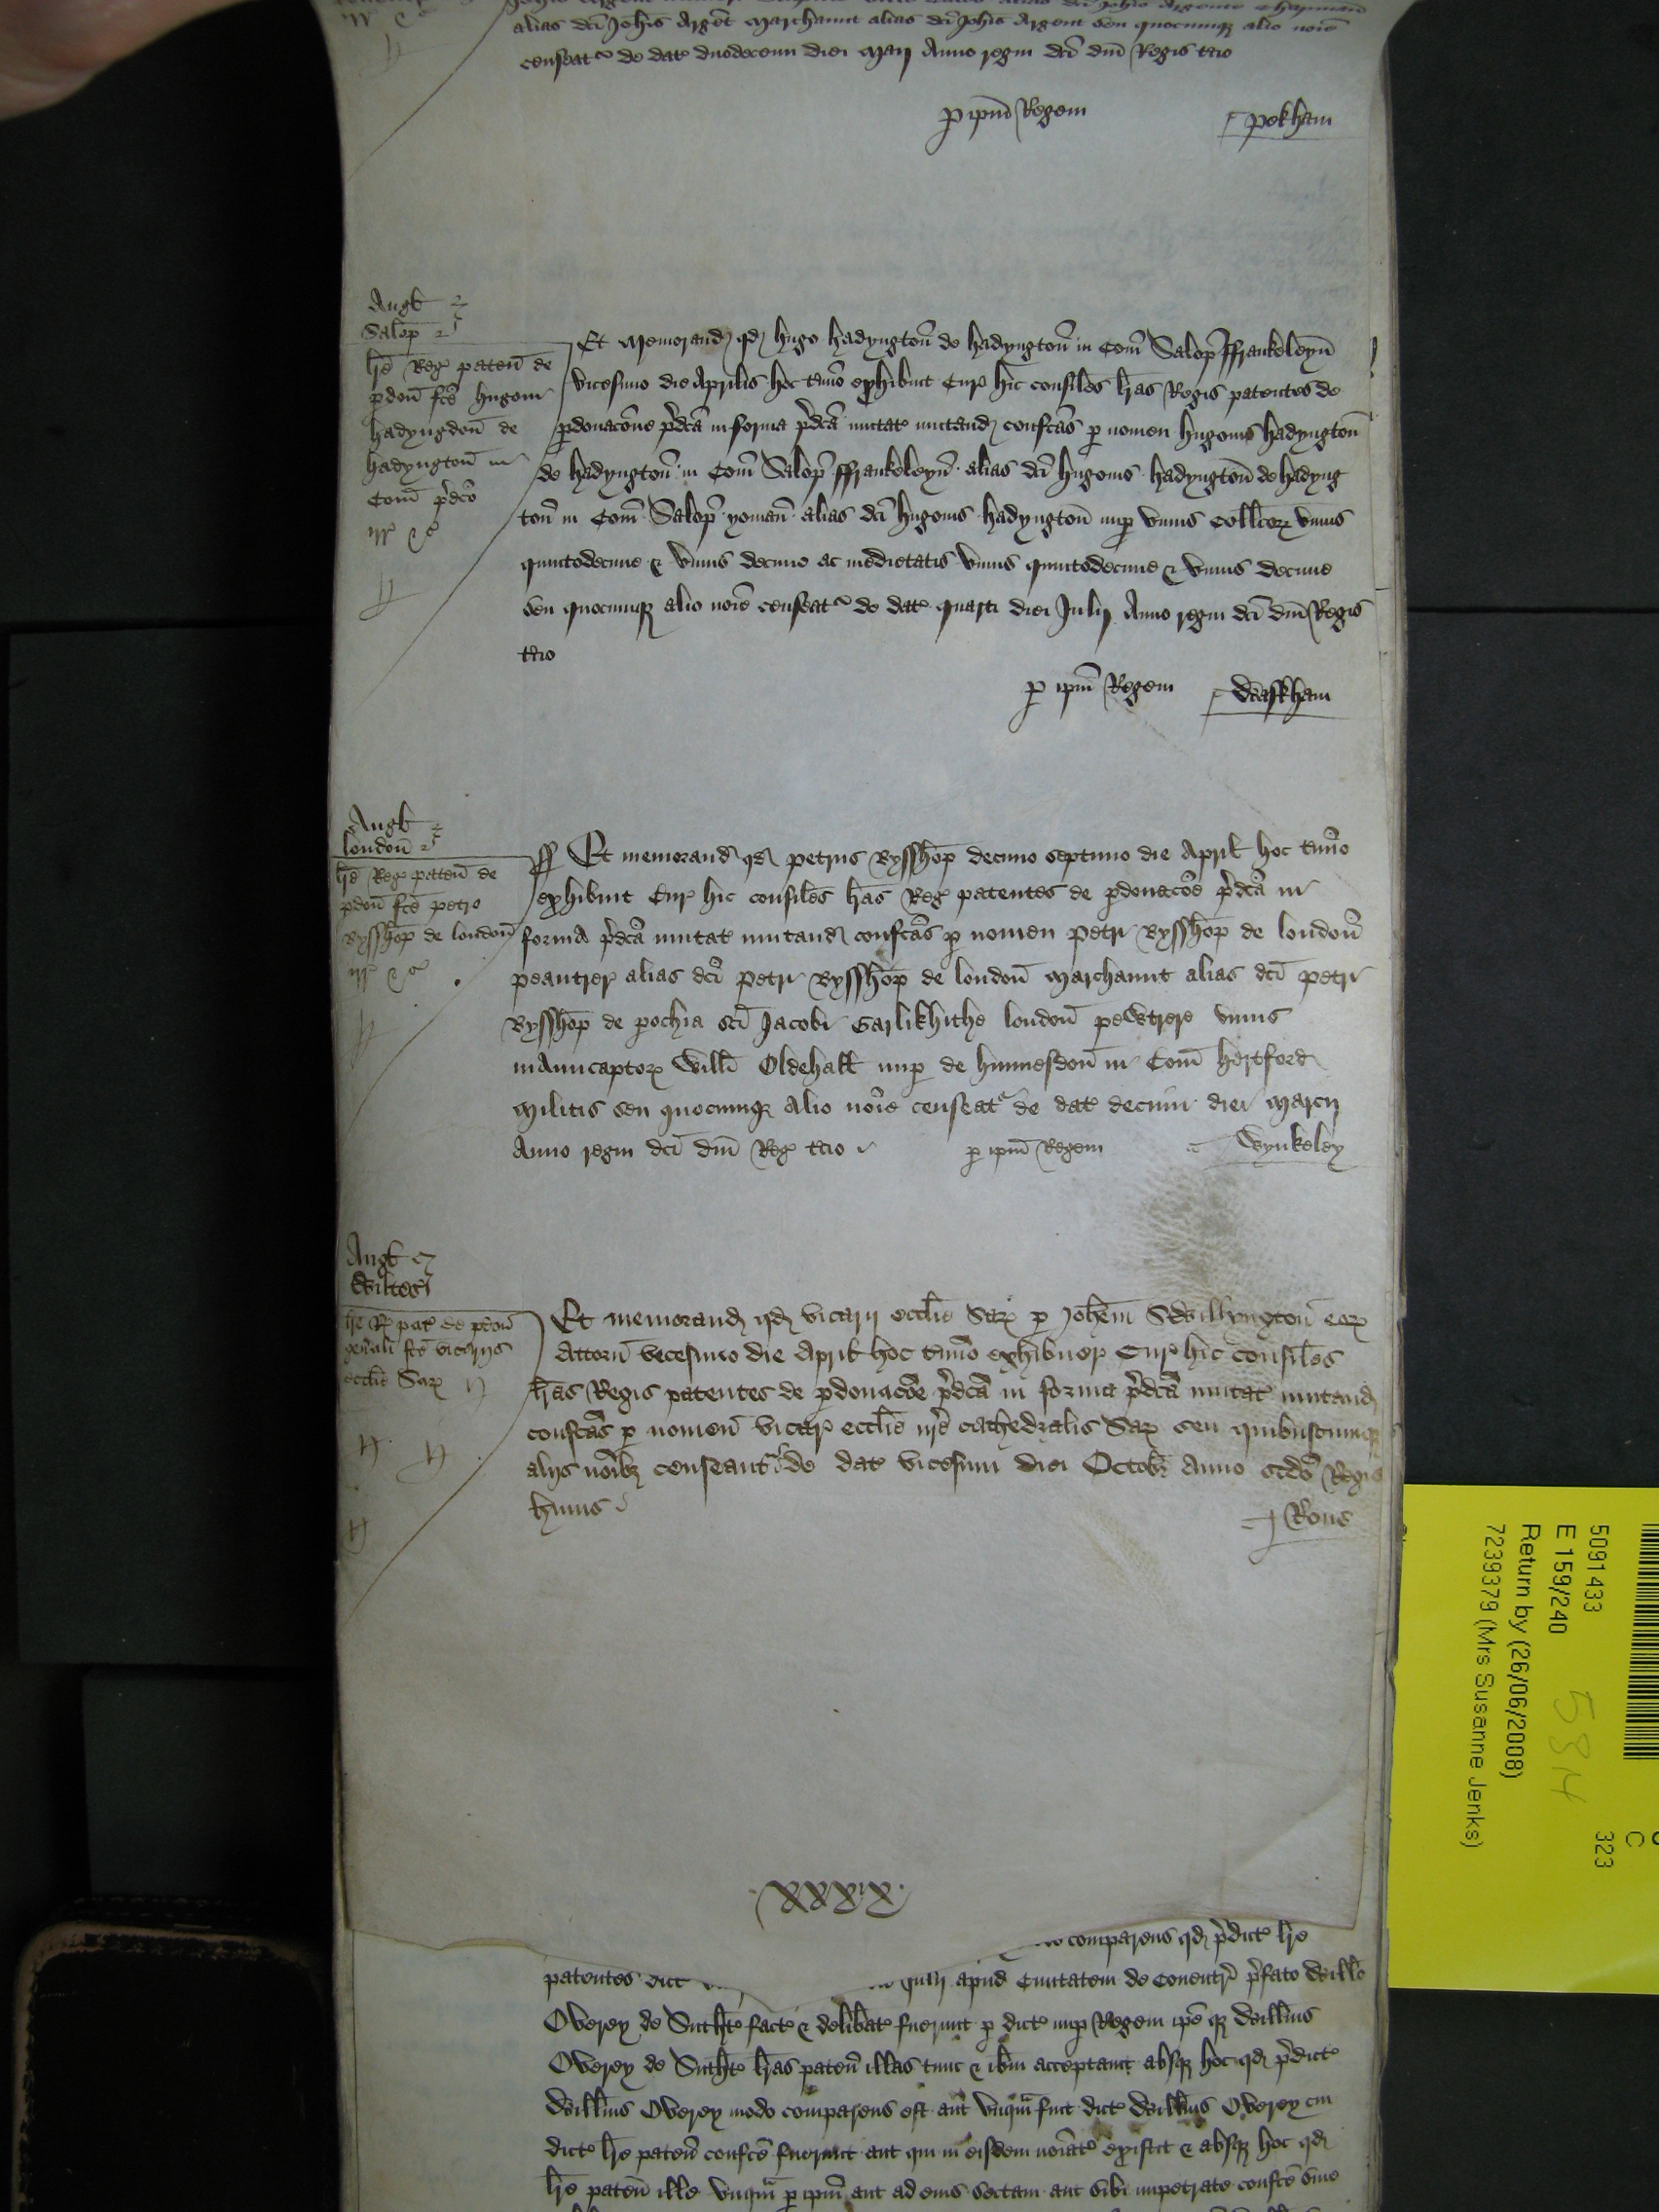 alias dc̄i Joh̄is Argent Marchaunt alias dc̄i Joh̄is Argent seu quocumqꝫ alio noīe
censeatʳ de datꝭ duodecimi diei Maij Anno regni dc̄i dn̄i Regis tcio
ꝑ ip̄m Regem Pekham
Angł
Salop̄
lr̄e Regꝭ pateñ de
ꝑdoñ fc̄e Hugoni
Hadyngdon̄ de
Hadyngton̄ in
Com̄ p̄dc̄o
Et Memorandꝭ qđ Hugo Hadyngton̄ de Hadyngton̄ in Com̄ Salop̄ ffrankeleyn̄
vicesimo die Aprilis hoc tm̄io exhibuit Curꝭ hic consiles lr̄as Regis patentes de
ꝑdonacōne p̄dc̄a in forma p̄dc̄a mutatꝭ mutandꝭ confc̄as ꝑ nomen Hugonis Hadyngton̄
de Hadyngton̄ in Com̄ Salop̄ ffrankeleyn̄ alias dc̄i Hugonis Hadyngton̄ de Hadyng
ton̄ in Com̄ Salop̄ yoman̄ alias dc̄i Hugonis Hadyngton̄ nuꝑ unius Collc̄oꝝ unius
quintedecime & unius decime ac medietatis unius quintedecime & unius decime
seu quocumqꝫ alio noīe censeatʳ de datꝭ quarti diei Julij Anno regni dc̄i dn̄i Regis
tcio
ꝑ ip̄m Regem
Angł
London̄
lr̄e Regꝭ paten̄ de
ꝑdon̄ fc̄e Petro
Bysshop̄ de London̄
Et memorandꝭ qđ Petrus Bysshop̄ decimo septimo die Apriłł hoc tm̄io
exhibuit Curꝭ hic consiles lr̄as Regꝭ patentes de ꝑdonacōe p̄dc̄a in
forma p̄dc̄a mutatꝭ mutandꝭ confc̄as ꝑ nomen Petri Bysshop̄ de London̄
peautrer alias dc̄i Petri Bysshop̄ de London̄ Marchaunt alias dc̄i Petri
Bysshop̄ de ꝑochia sc̄i Jacobi Garlikhithe London̄ pewtrere unius
manucaptoꝝ Willi Oldehałł nuꝑ de Hunnesdon̄ in Com̄ Hertford
Militis seu quocumqꝫ alio noīe censeatʳ de datꝭ decimi diei Marcij
Anno regni dc̄i dn̄i Regꝭ tcio ꝑ ip̄m Regem Wynkeley
Angł
Wiltes
lr̄e Rꝭ patꝭ de ꝑdon̄
gen̄ali fc̄e vicarijs
eccłie Saꝝ
Et memorandꝭ qđ vicarij eccłie Saꝝ ꝑ Joh̄em Swillyngton̄ eoꝝ
Attorn̄ vecesimo die Apriłł hoc tm̄io exhibueꝝ Curꝭ hic consiles
lr̄as Regis patentes de ꝑdonacōe p̄dc̄a in forma p̄dc̄a mutatꝭ mutandꝭ
confc̄as ꝑ nomen̄ vicarꝭ eccłie nr̄e cathedralis Saꝝ seu quibuscumqꝫ
alijs noībꝫ censeantʳ de datꝭ vicesimi diei Octobꝭ Anno scd̄o Regis
huius Rous
xxxix
comparens qđ p̄dictꝭ lr̄e
patentes dict apud Ciuitatem de Couentrꝭ p̄fato Willo
Overey de Suthtꝭ factꝭ & delib̄atꝭ fuerunt ꝑ dictꝭ nuꝑ Regem ip̄eqꝫ Willm̄s
Overey de Suthtꝭ lr̄as paten̄ illas tunc & ibm̄ acceptauit absqꝫ hoc qđ p̄dictꝭ
Willm̄s Overey modo comparens est aut unqᵃm fuit dictꝭ Willm̄s Overey cui
dictꝭ lr̄e paten̄ confc̄e fuerunt aut qui in eisdem noīatꝭ existit & absqꝫ hoc qđ
lr̄e paten̄ ille unqᵃm ꝑ ip̄m aut ad eius sectam aut sibi impetrate confc̄e siue
5091433
E 159/240
Return by (26/06/2008)
7239379 (Mrs Susanne Jenks)
323
C